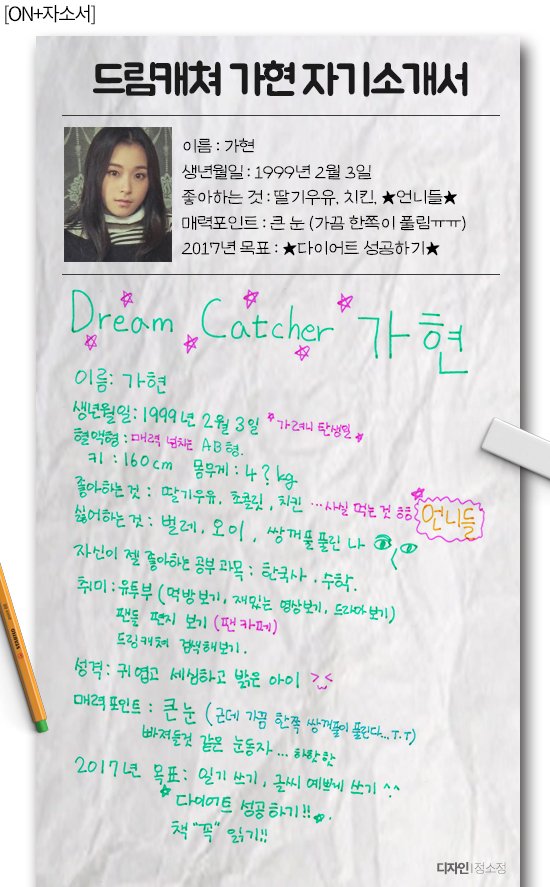 [ON+자소서]
드림캐쳐 가현 자기소개서
이름 : 가현
생년월일 : 1999년 2월 3일
좋아하는 것 : 딸기우유, 치킨, ★언니들★
매력포인트 : 큰 눈 (가끔 한쪽이 풀림ㅠㅠ)
2017년 목표 : ★다이어트 성공하기★
Dream Catcher 가현
이름: 가현
생년월일: 1999년 2월 3일 *가려니 탄생일*
혈액형: 매력 넘치는 AB형.
키: 160cm 몸무게: 4?kg
좋아하는 것: 딸기우유, 초콜릿, 치킨 ...사실 먹는 것 ㅎㅎ 언니들
싫어하는 것: 벌레, 오이, 쌍꺼풀 풀린 나
자신이 젤 좋아하는 공부 과목: 한국사·수학.
취미: 유투부 (먹방보기, 재밌는 영상보기, 드라마보기)
팬들 편지 보기 (팬카페)
드림캐쳐 검색해보기.
성격: 귀엽고 세심하고 밝은 아이 >_<
매력포인트: 큰 눈 (근데 가끔 한쪽 쌍꺼풀이 풀린다...T.T)
빠져들것 같은 눈동자... 하핳핳
2017년 목표: 일기 쓰기, 글씨 예쁘게 쓰기 ^^
*다이어트 성공하기!!*
책 "꼭" 읽기!!
디자인|정소정